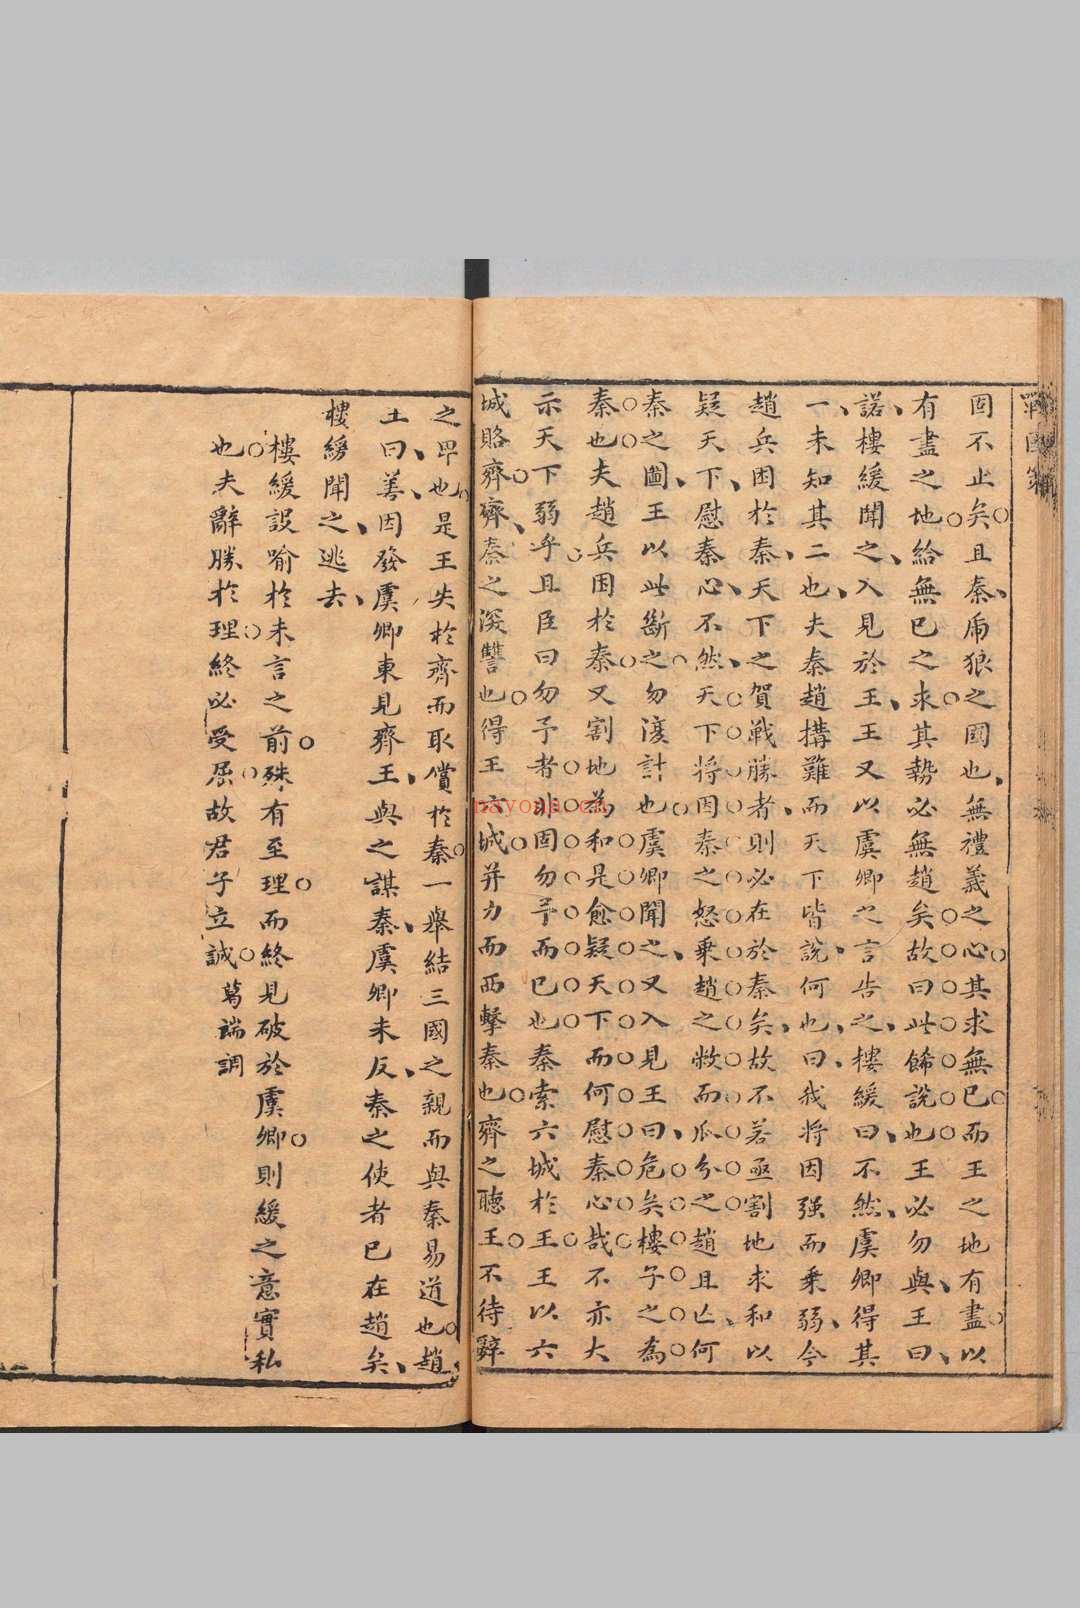 固不止矣且秦虎狼之國也無禮義之心其求無已而王之地有盡以
有盡之地給無已之求其勢必無趙矣故曰此飾說也王必勿與王曰
諾樓緩聞之入見於王王又以虞卿之言告之樓緩曰不然虞卿得其
一未知其二也夫秦趙搆難而天下皆說何也曰我將因强而乗弱今
趙兵困於秦天下之賀戰勝者則必在於秦矣故不若亟割地求和以
疑天下慰秦心不然天下將因秦之怒乗趙之敝而瓜分之趙且亡何
秦之圖王以此斷之勿復計也虞卿聞之又入見王曰危矣樓子之為
秦也夫趙兵困於秦又割地為和是愈疑天下而何慰秦心哉不亦大
示天下弱乎且臣曰勿予者非固勿予而已也秦索六城於王王以六
城賂齊齊秦之深讐也得王六城并力而西擊秦也齊之聽王不待辭
之畢也是王失於齊而取償於秦一舉結三國之親而與秦易道也趙
王曰善因發虞卿東見齊王與之謀秦虞卿未反秦之使者已在趙矣
樓緩聞之逃去
樓緩設喻於未言之前殊有至理而終見破於虞卿則緩之意實私
也夫辭勝於理終必受屈故君子立誠 葛端調
nayona.cn